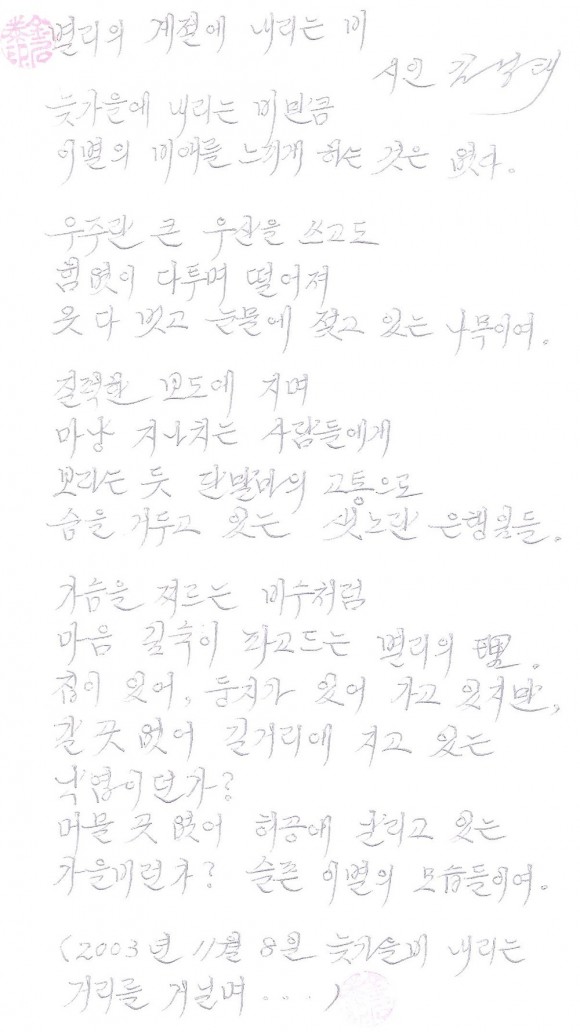 별리의 계절에 내리는 비
시인 김남태
늦가을에 내리는 비만큼
이별의 비애를 느끼게 하는 것은 없다.
우주란 큰 우산을 쓰고도
힘없이 다투며 떨어져
옷 다 벗고 눈물에 젖고 있는 나목이여.
질척한 보도에 지며
마냥 지나치는 사람들에게
보라는 듯 단발마의 고통으로
숨을 거두고 있는 샛노란 은행잎들.
가슴을 찌르는 비수처럼
마음 깊숙이 파고드는 별리의 理.
집이 있어, 둥지가 있어 가고 있지만,
갈 곳 없어 길거리에 지고 있는
낙엽이던가?
머물 곳 없어 허공에 날리고 있는
가을비런가? 슬픈 이별의 모습들이여.
(2003년 11월 8일 늦가을비 내리는
거리를 거닐며....)